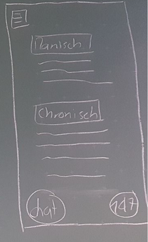 Manisch
Chronisch
chat
147